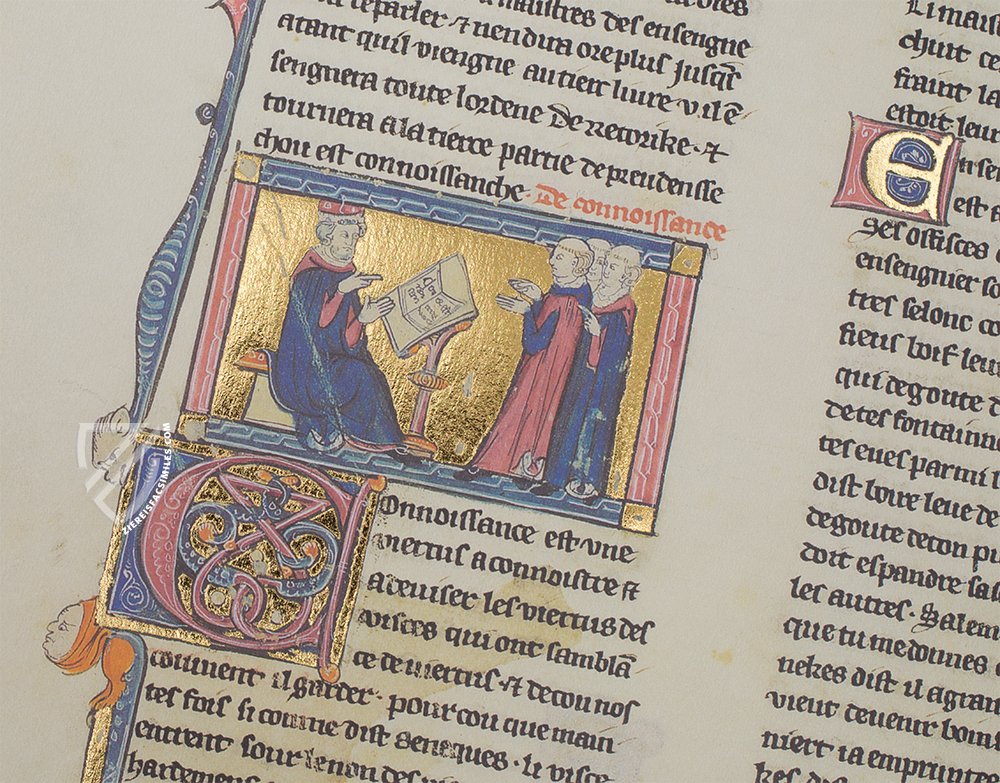 reparler ⁊ nen dira ore plus jusqē
atant quil viengne autiert livre v il ē
sengnera toute lordene De retorike· ⁊
tournera a la tierce partie de preudensse
chou est connoissanche· De connoissance
Connoissance est une
viertus a connoistre ⁊
a deviser les viertus des
visces qui ont samblā
ce de viertus· ⁊ de cou nos
couvient il garder· pour cou que main
tes fois si comme dist Seneques· li visce
entrent sour le non des
hardemens
Li mais
chiut ce
fraint la
estoit leu
Ensen
est a
ges offisces
ensengnier so
tres selonc co
fiens boif leu
qui degoute d
de tes fontainn
tes eues parmi
dist boire leue de
degoute de ton pu
doit espandre sa
les autres· Salem
que tu me donnes
nekes dist il a gran
vient devenir bon
niert ia emprunte
ZIEREISFACSIMILES.COM